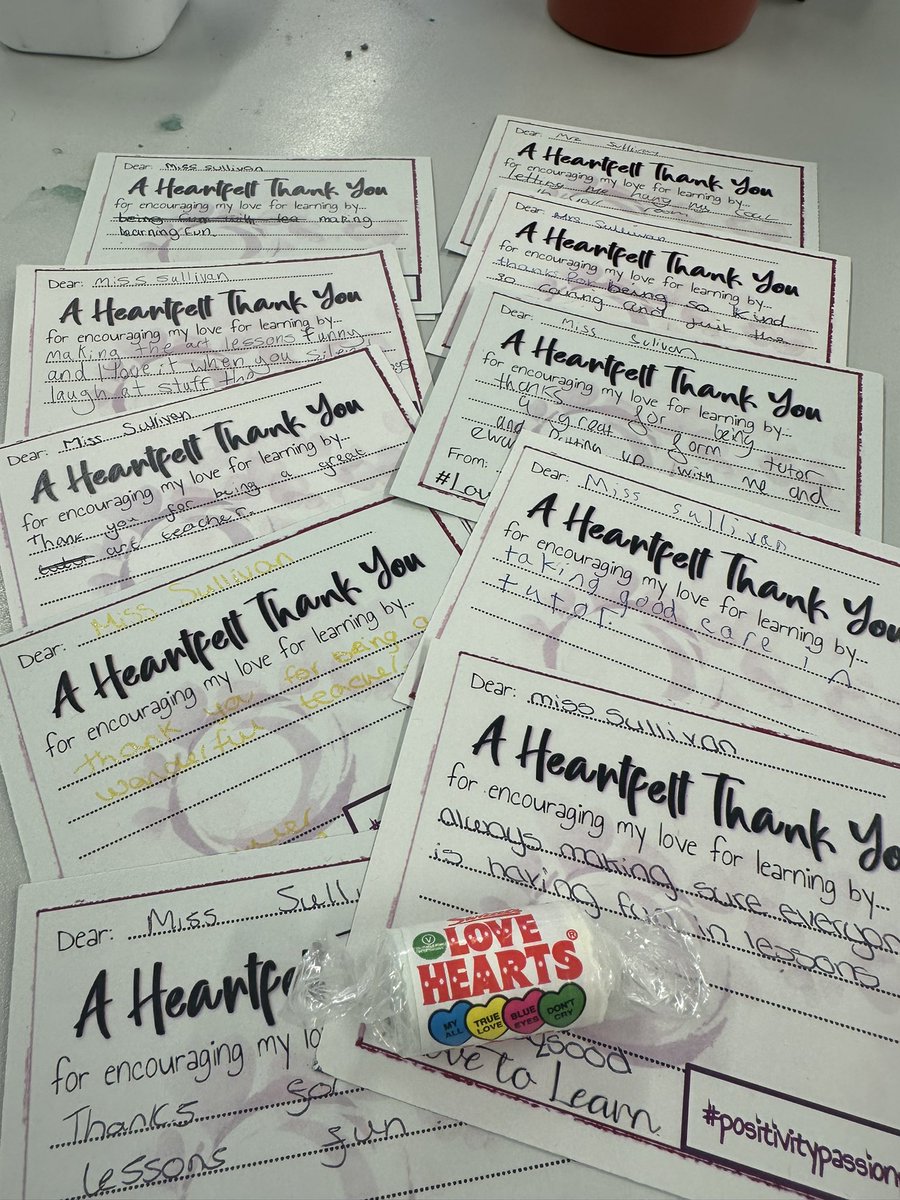 Dear: Miss Sullivan
A Heartfelt Thank You
for encouraging my love for learning by...
being fun with tea making
learning fun.
Dear: Mrs Sullivan
A Heartfelt Thank You
for encouraging my love for learning by...
letting me hang my coat
in your room
Dear: Miss Sullivan
A Heartfelt Thank You
for encouraging my love for learning by...
making the art lessons funny
and I love it when you
laugh at stuff
Dear: Mrs Sullivan
A Heartfelt Thank You
for encouraging my love for learning by...
thanks for being so kind
so caring and just the
Dear: Miss Sulivan
A Heartfelt Thank You
for encouraging my love for learning by...
thanks for being
a great form tutor
and putting up with me and
From:
#Lov
Dear: Miss Sullivan
A Heartfelt Thank You
for encouraging my love for learning by...
Thank you for being a great
art teacher.
Dear: Miss sullivan
A Heartfelt Thank You
for encouraging my love for learning by...
taking good care !
tutor.
Dear: Miss Sullivan
A Heartfelt Thank You
for encouraging my love for learning by...
thank you for being a
wonderful teacher
Dear: miss Sullivan
A Heartfelt Thank Yo
for encouraging my love for learning by...
always making sure everyone
is having fun in lessons
ve to Learn
#positivitypassion
Dear: Miss Sulli
A Heartfel
for encouraging my lo
Thanks for
lessons fun
Swizzels
LOVE
HEARTS®
MY ALL
TRUE LOVE
BLUE EYES
DON'T CRY